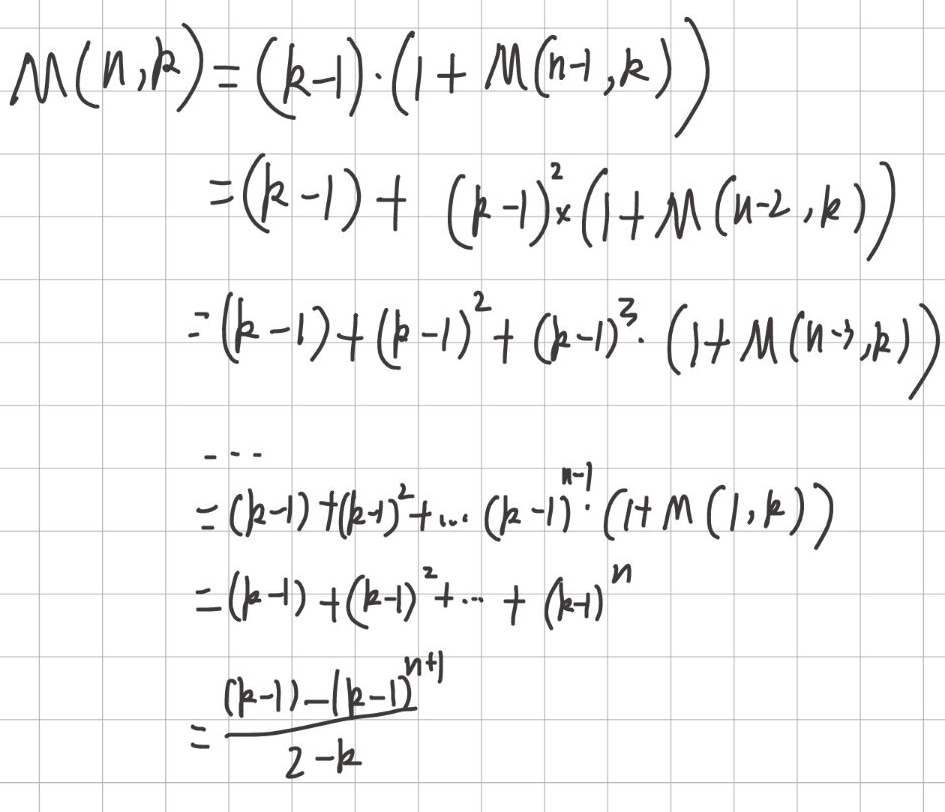 M(n,k)=(k-1)·(1+M(n-1,k))
=(k-1)+(k-1)²×(1+M(n-2,k))
=(k-1)+(k-1)²+(k-1)³·(1+M(n-3,k))
...
=(k-1)+(k-1)²+...(k-1)ⁿ⁻¹·(1+M(1,k))
=(k-1)+(k-1)²+...+(k-1)ⁿ
=((k-1)-(k-1)ⁿ⁺¹)/(2-k)